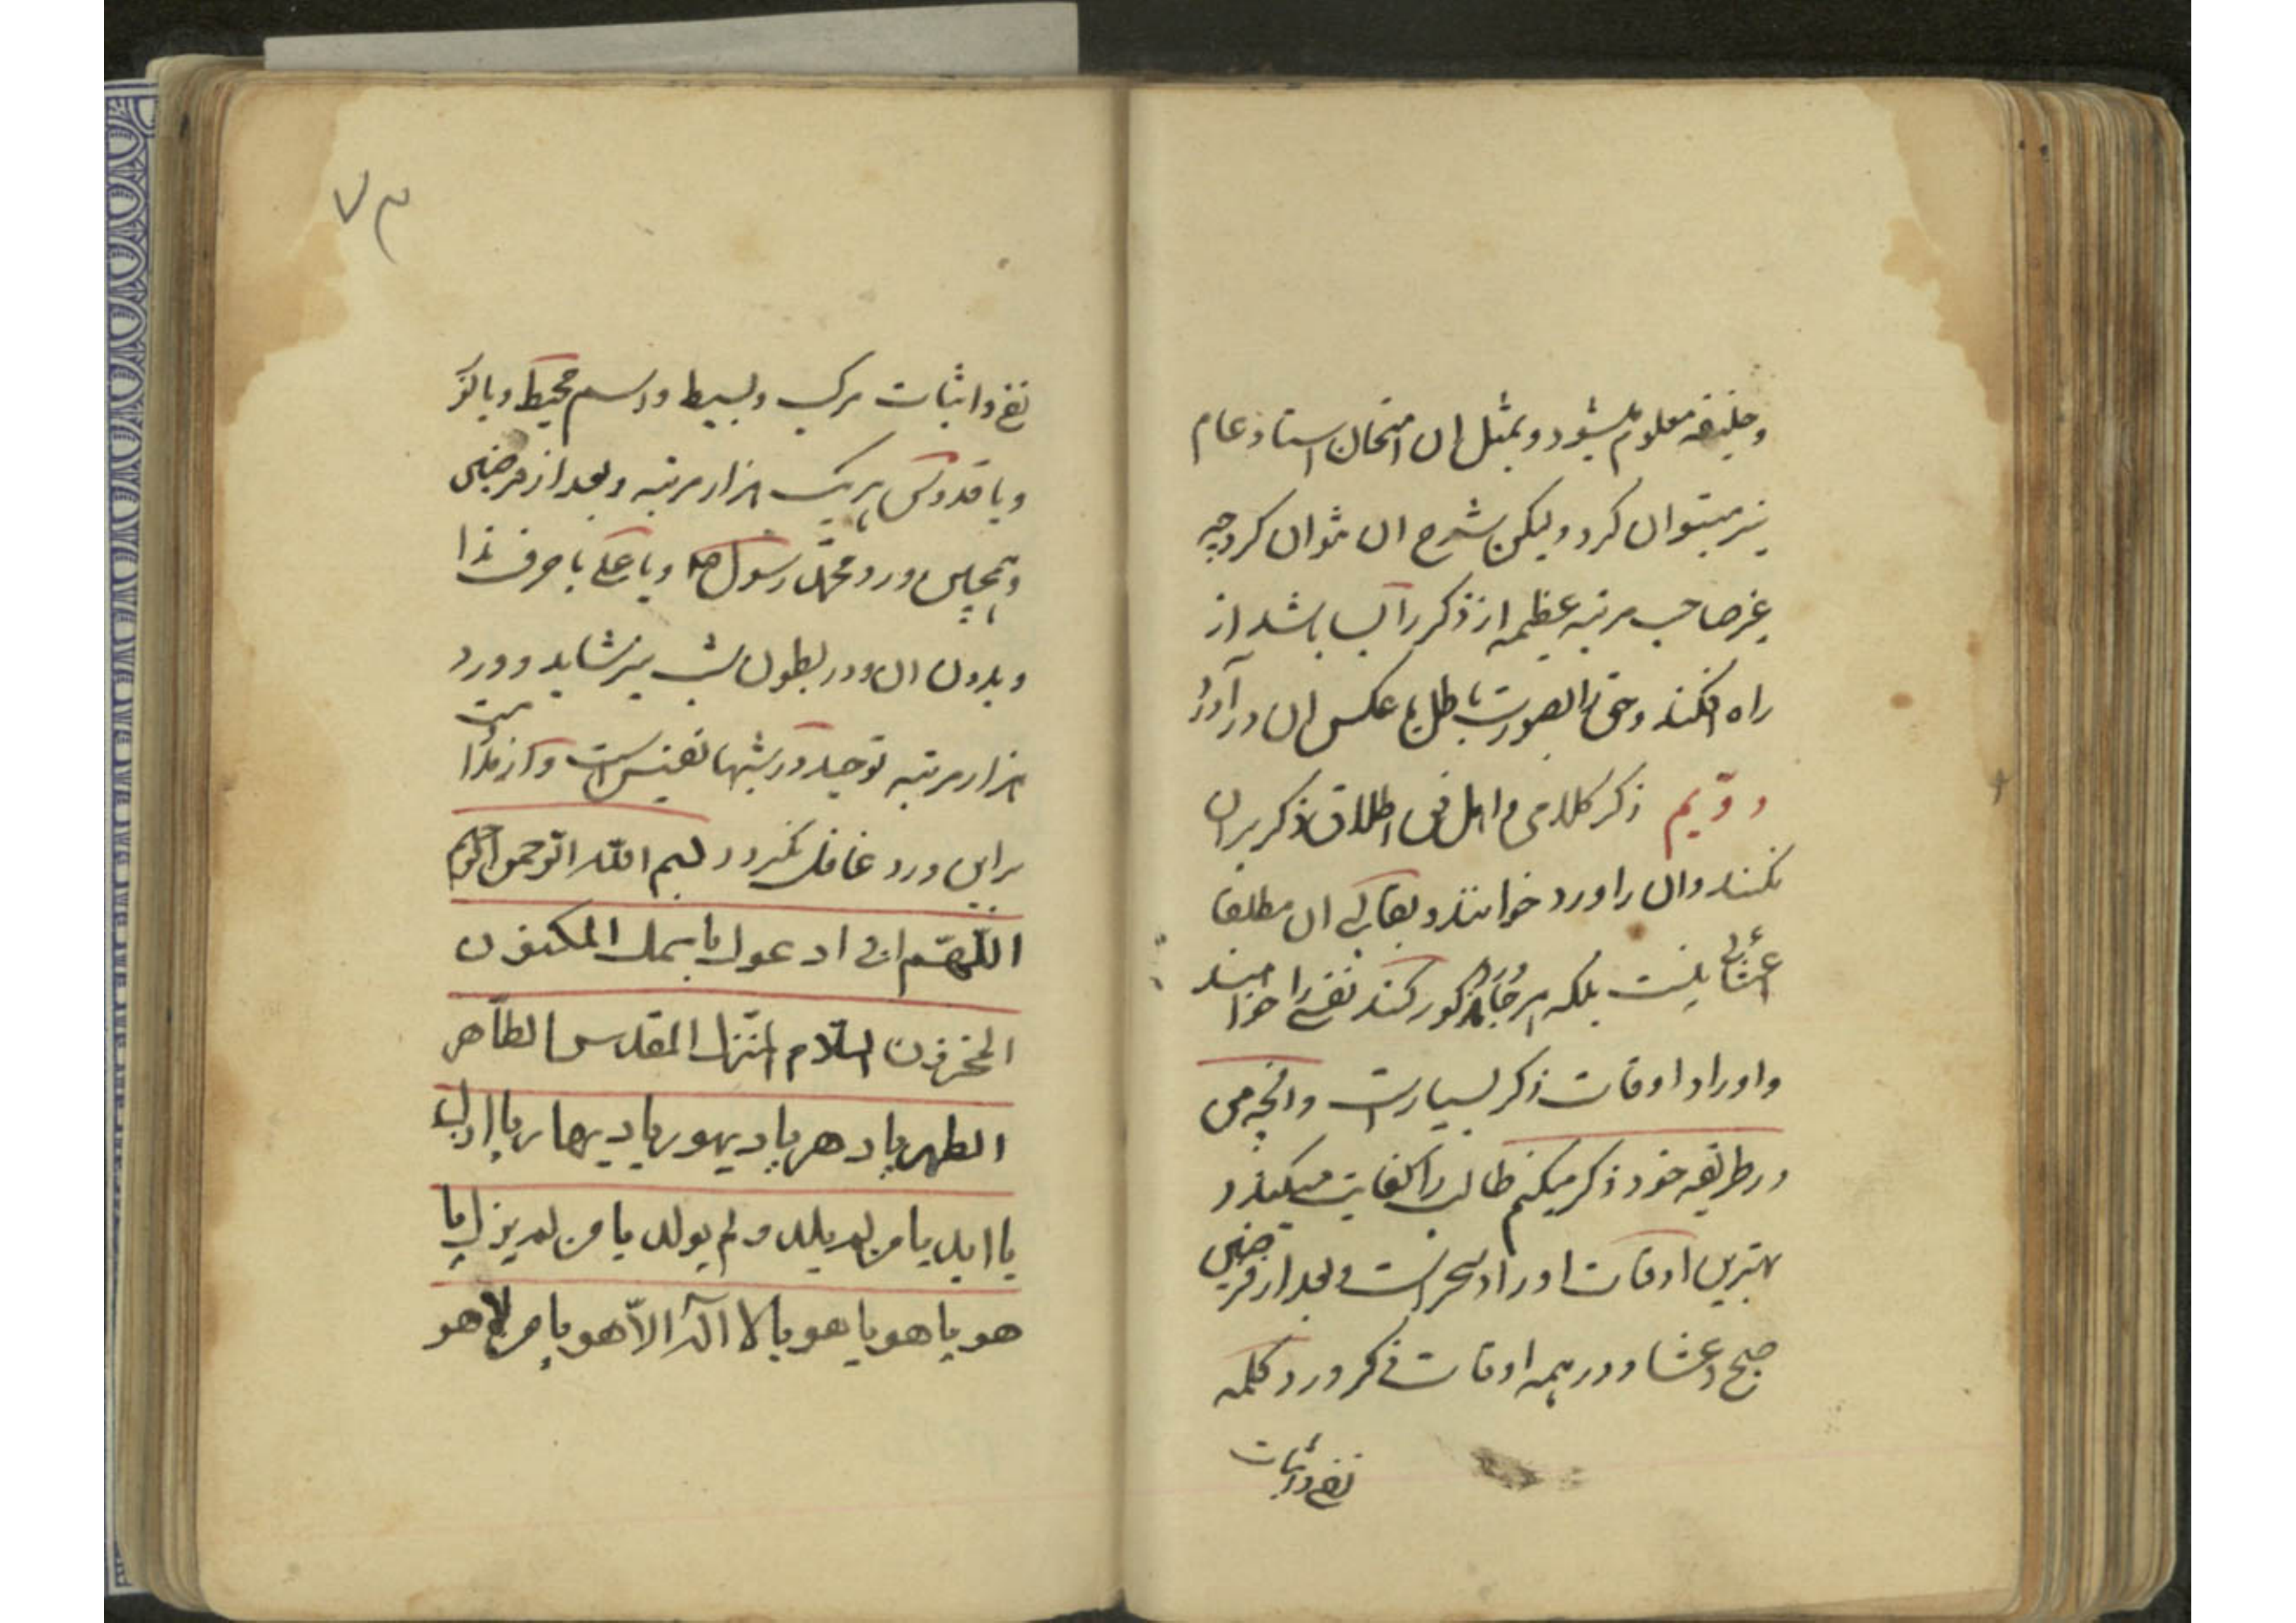 و خلیفه معلوم میشود و بمثل ان امتحان استاد عام
نیز میتوان کرد ولیکن شرح ان نتوان کرد چه
غیر صاحب مرتبه عظیمه از ذکر را باشد از
راه افکند و حق را بصورت باطل یا عکس ان در آورد
دویم ذکر کلامی و اهل فن اطلاق ذکر بران
نکنند وان را ورد خوانند و بقای ان مطلقا
نیست بلکه هر مذکور کند نفعی را خواهند
و اوراد اوقات ذکر بسیارست و انچه من
در طریقه خود ذکر میکنم طالب را کفایت میکند و
بهترین اوقات اوراد سحر است و بعد از فرضین
صبح و عشا و در همه اوقات فکر ورد کلمه
نفی و اثبات
۷۳
نفی و اثبات مرکب و بسیط و اسم محیط و یا
و یا قدوس هریک هزار مرتبه و بعد از فرضین
و همچنین ورد محمد رسول الله و یا علی با حرف ندا
و بدون ان و در بطون شب نیز شاید و ورد
هزار مرتبه توحید در شبها نفیس است و از
براین ورد غافل نگردد بسم الله الرحمن الرحیم
اللهم انی ادعوك باسمك المکنون
المخزون السلام المنزل المقدس الطاهر
المطهر یا دهر یا دیهور یا دیهار یا ازل
یا ابد یا من لم یلد و لم یولد یا من لم یزل یا
هو یا هو یا هو یا لا اله الا هو یا من لا هو